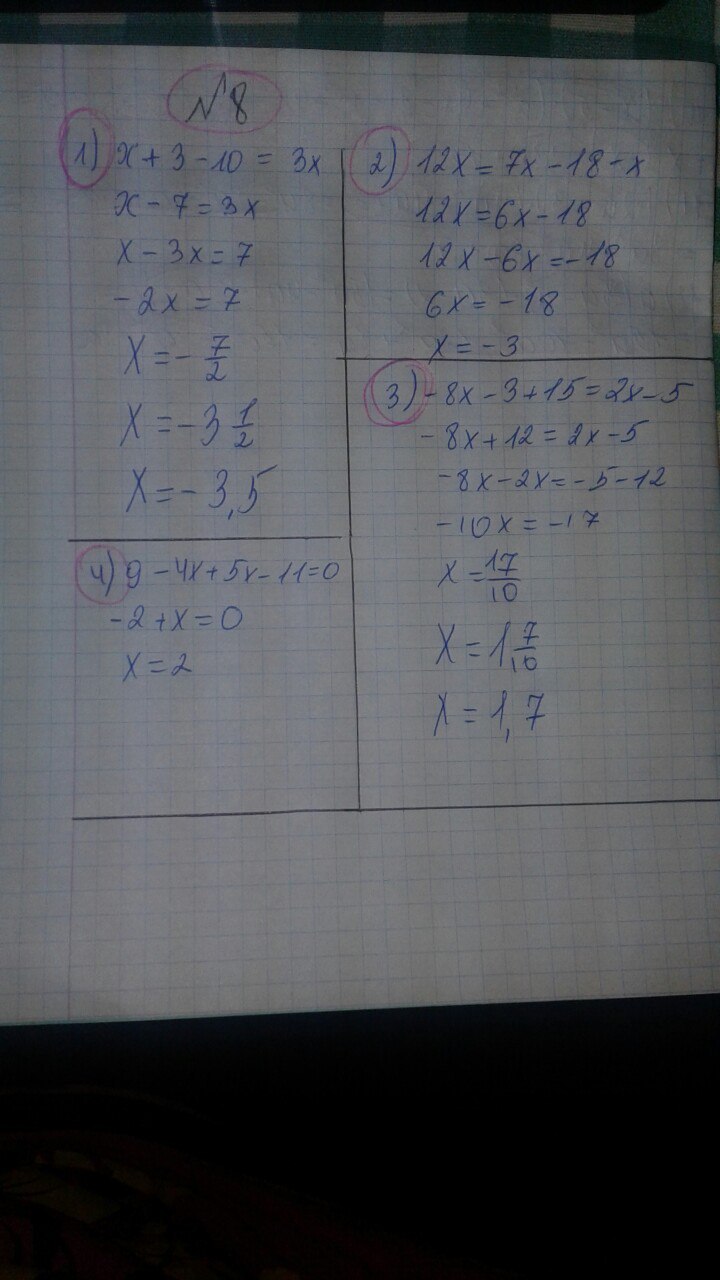 №8
1) x + 3 - 10 = 3x
x - 7 = 3x
x - 3x = 7
-2x = 7
x = - 7/2
x = -3 1/2
x = -3,5
2) 12x = 7x - 18 - x
12x = 6x - 18
12x - 6x = -18
6x = -18
x = -3
3) -8x - 3 + 15 = 2x - 5
-8x + 12 = 2x - 5
-8x - 2x = -5 - 12
-10x = -17
x = 17/10
x = 1 7/10
x = 1,7
4) 9 - 4x + 5x - 11 = 0
-2 + x = 0
x = 2